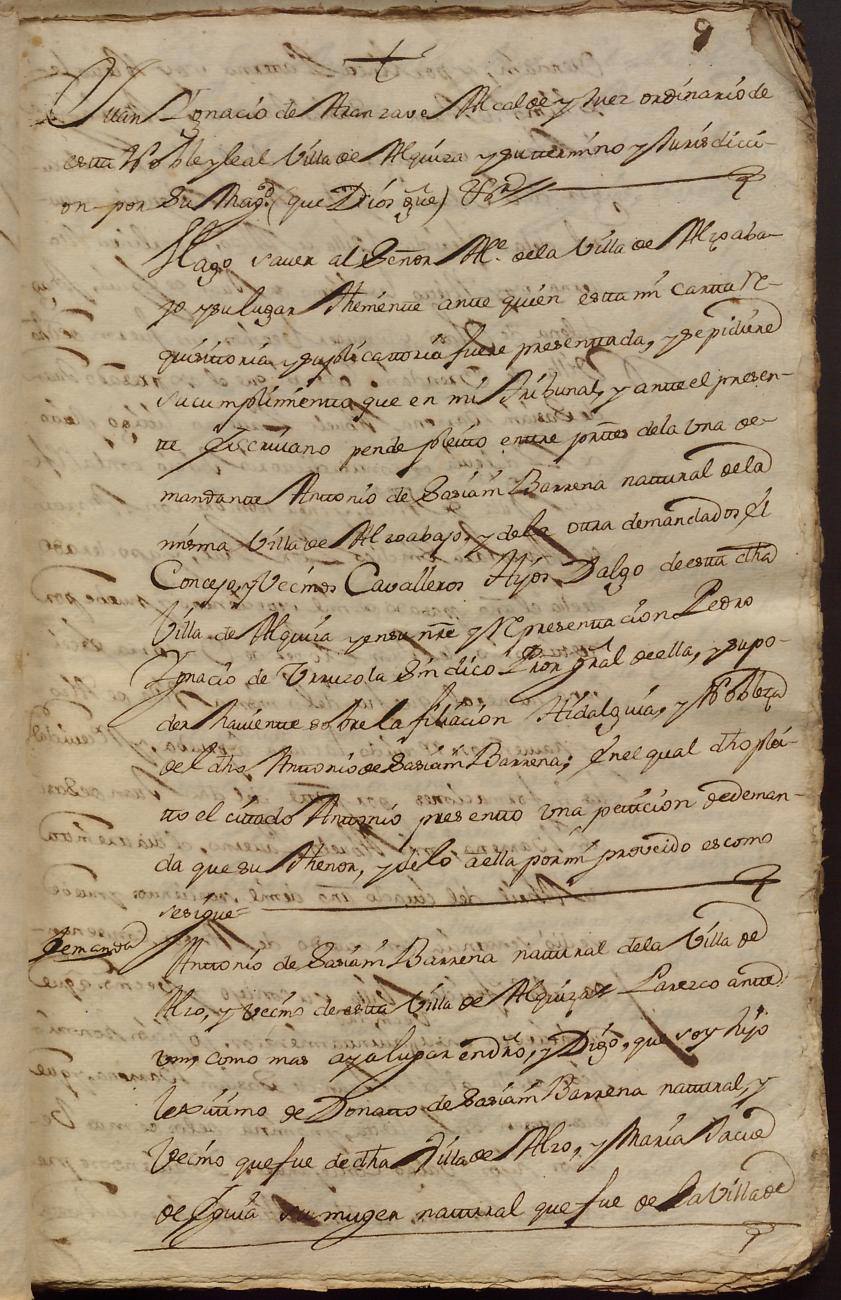 9
Juan Ygnacio de Aranzave Alcalde y Juez ordinario de
esta Noble y leal Villa de Alquiza y su termino y Jurisdicci-
on por Su Magd. (que Dios gue)
Hago saver al Señor Alce. de la Villa de Alzo aba-
jo y su lugar Theniente ante quien esta mi Carta Re-
quisitoria y suplicattoria fuere presenttada, y se pidiere
su cumplimientto que en mi Tribunal, y antte el presen-
te Escrivano pende pleitto entre prtes de la Una de-
mandante Anttonio de Sasiam Barrena nattural de la
misma Villa de Alzo abajo, y de la otra demandados el
Concejo, y Vecinos Cavalleros Hijos Dalgo de esta dha
Villa de Alquiza y en su nre y Representacion Pedro
Ygnacio de Urruzola Sindico Pror gral de ella, y su po-
der haviente sobre la filiacion Hidalguia, y Nobleza
del dho Anttonio de Sasiam Barrena; En el qual dho plei-
tto el cittado Anttonio presentto Una peticion de deman-
da que su Thenor, y de lo a ella por mi proveido es como
se sigue=
Demanda Anttonio de Sasiam Barrena nattural de la Villa de
Alzo, y Vecino de esta Villa de Alquiza Parezco antte
Vm, como mas aya lugar en dro, y Digo, que soy hijo
lexitimo de Donatto de Sasiam Barrena nattural, y
Vecino que fue de dha Villa de Alzo, y Maria
de Eguia su muger nattural que fue de la Villa de